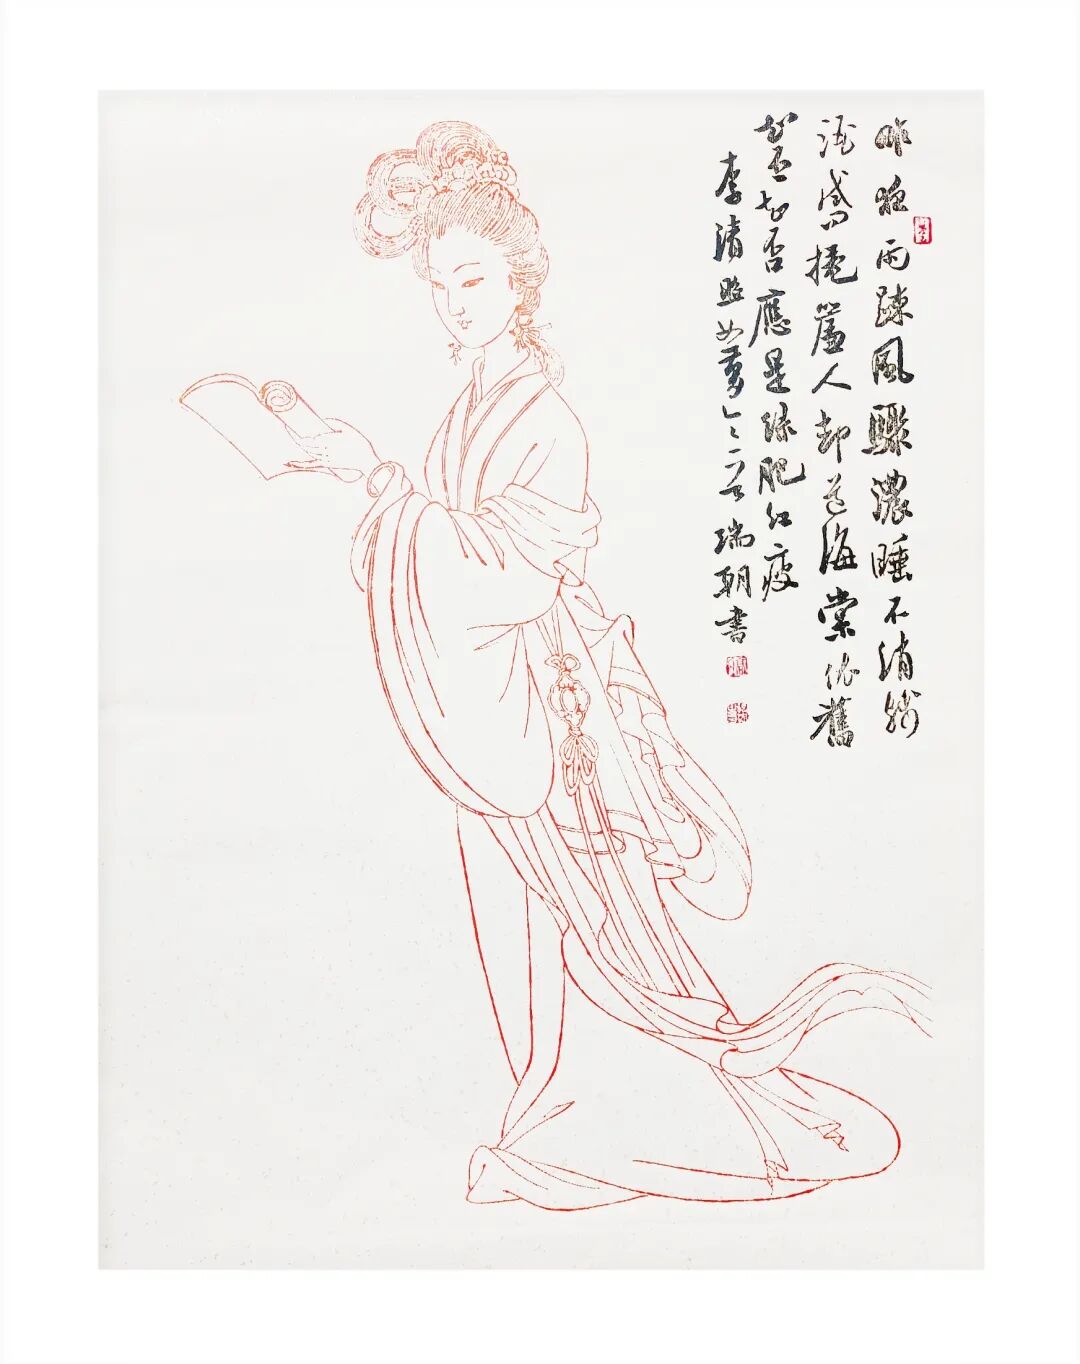 昨夜雨疎風驟濃睡不消殘
酒試問捲簾人却道海棠依舊
知否知否應是綠肥紅瘦
李清照如夢令 瑞朝書